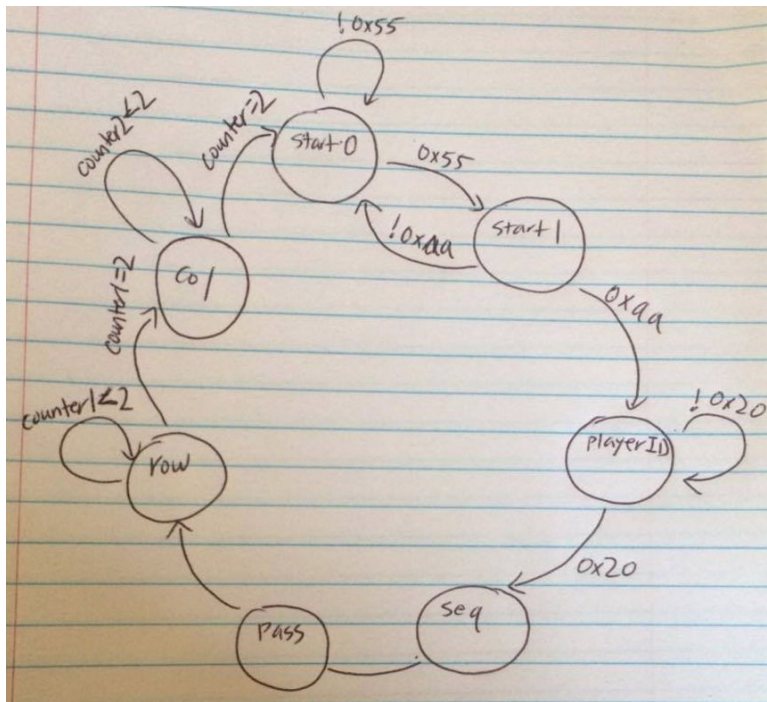 ! 0x55
start0
0x55
start1
!0xaa
0xaa
playerID
! 0x20
0x20
seq
pass
row
counter1<2
counter1=2
col
counter2<2
counter=2